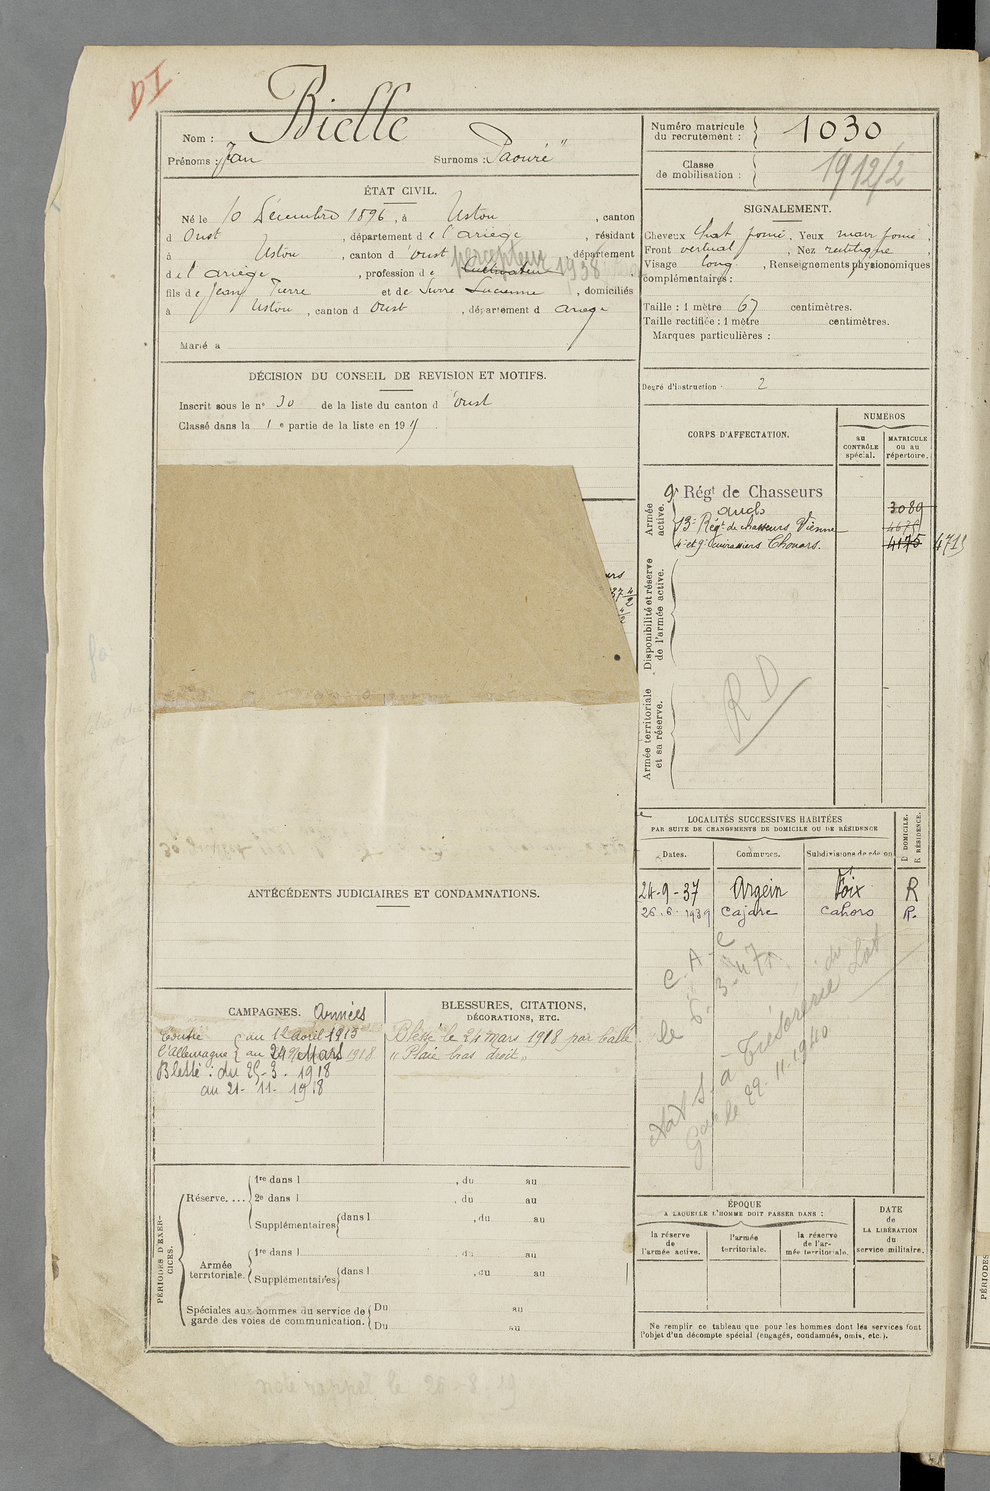 DI
Nom : Bielle
Prénoms : Jean Surnoms : "Paouré"
ÉTAT CIVIL.
Né le 10 Décembre 1896, à Ustou, canton
d'Oust, département de l'ariège, résidant
à Ustou, canton d'oust département
de l'ariège, profession de Cultivateur percepteur 1938
fils de Jean Pierre et de Servre Lucienne, domiciliés
à Ustou, canton d Oust, département d ariege
Marié à
DÉCISION DU CONSEIL DE REVISION ET MOTIFS.
Inscrit sous le n° 30 de la liste du canton d'oust
Classé dans la 1e partie de la liste en 19
ANTÉCÉDENTS JUDICIAIRES ET CONDAMNATIONS.
CAMPAGNES. Armées
Contre au 12 avril 1915
l'Allemagne au 24 Mars 1918
Blessé : du 25-3-1918
au 21-11-1918
BLESSURES, CITATIONS,
DÉCORATIONS, ETC.
Blessé le 24 mars 1918 par balle
"Plaie bras droit"
PÉRIODES D'EXERCICES.
Réserve.... 1re dans l , du au
2e dans l , du au
Supplémentaires dans l , du au
Armée territoriale. 1re dans l , du au
Supplémentaires dans l , du au
Spéciales aux hommes du service de Du au
garde des voies de communication. Du au
note rappel le 26-8-19
Numéro matricule
du recrutement : 1030
Classe
de mobilisation : 1912/2
SIGNALEMENT.
Cheveux chat foncé, Yeux marr foncé,
Front vertical, Nez rectiligne,
Visage long, Renseignements physionomiques
complémentaires :
Taille : 1 mètre 67 centimètres.
Taille rectifiée : 1 mètre centimètres.
Marques particulières :
Degré d'instruction : 2
CORPS D'AFFECTATION.
NUMÉROS
au CONTRÔLE spécial.
MATRICULE ou au répertoire.
Armée active.
9e Régt de Chasseurs 3089
Auch
13e Régt de chasseurs Vienne
4e et 9e Cuirassiers Thouars. 4175 4715
Disponibilité et réserve de l'armée active.
Armée territoriale et sa réserve.
RD
LOCALITÉS SUCCESSIVES HABITÉES
PAR SUITE DE CHANGEMENTS DE DOMICILE OU DE RÉSIDENCE
Dates. Communes. Subdivisions de région D. DOMICILE. R. RÉSIDENCE.
24-9-37 Argein Foix R
26.6.1939 Cajarc Cahors R.
C.A.C
le 6.3.47
à Trésorerie du Lot
le 22.11.1940
ÉPOQUE
A LAQUELLE L'HOMME DOIT PASSER DANS :
la réserve de l'armée active.
l'armée territoriale.
la réserve de l'armée territoriale.
DATE
de
LA LIBÉRATION
du
service militaire.
Ne remplir ce tableau que pour les hommes dont les services font
l'objet d'un décompte spécial (engagés, condamnés, omis, etc.).
PÉRIODES